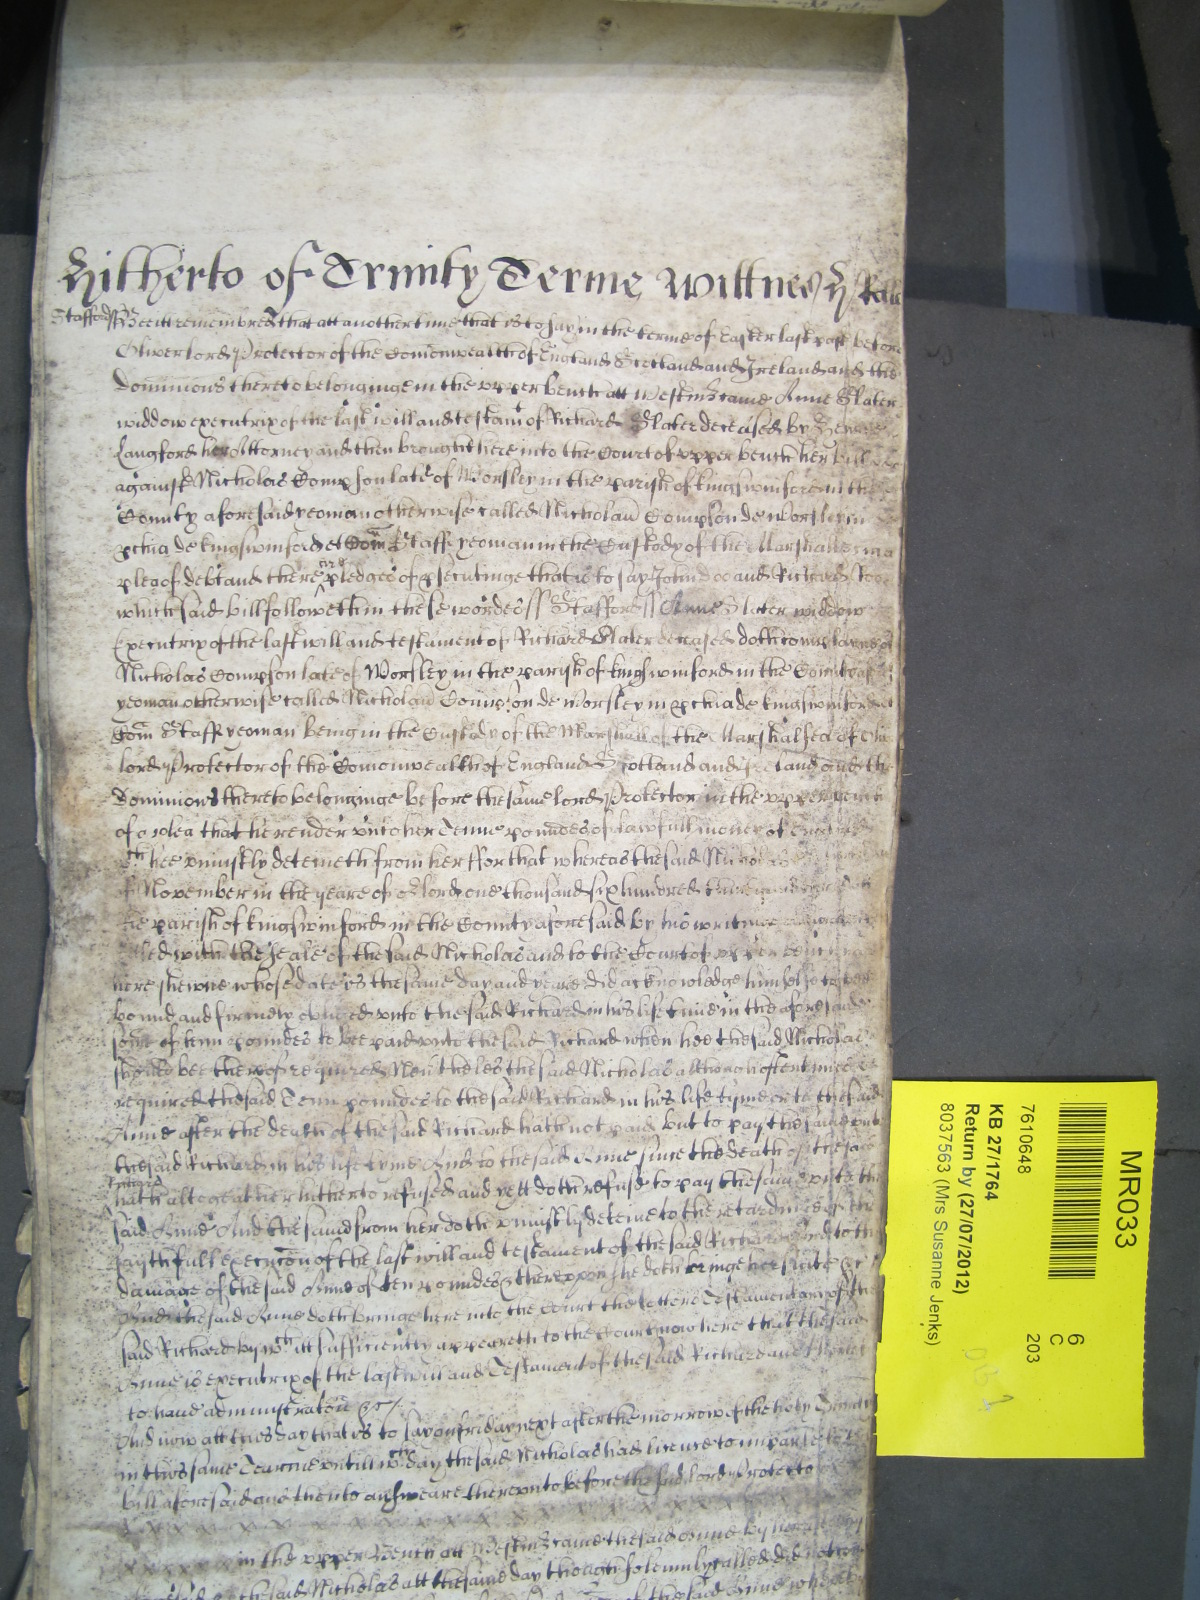 Hitherto of Trinity Terme Wittnes H Rolle
Stafford ss Bee itt remembred that att another time that is to say in the terme of Easter last past before
Oliver lord Protector of the Comonwealth of England Scotland and Ireland and the
dominions thereto belonginge in the upper bench att Westm̄ came Anne Slater
widdow executrix of the last will and testamt of Richard Slater deceased by
Langford her Attorney and then brought here into the Court of upper bench her bill
against Nicholas Compson late of Worsley in the parish of Kingswinford in the
County aforesaid yeoman otherwise called Nicholaū Compson de Worsley in
pchia de Kingswinford et Com̄ Staff yeoman in the Custody of the Marshall
plea of debt and there are pledges of psecutinge that is to say John Doo and Richard Roo
which said bill followeth in these wordes ss Stafford ss Anne Slater widdow
Executrix of the last will and testament of Richard Slater deceased doth complaine of
Nicholas Compson late of Worsley in the parish of Kingswinford in the County
yeoman otherwise called Nicholaū Compson de Worsley in pchia de Kingswinford et
Com̄ Staff yeoman being in the Custody of the Marshall of the Marshalsea of the
lord Protector of the Comonwealth of England Scotland and Ireland and the
dominions thereto belonginge before the same lord Protector in the upper bench
of a plea that he render unto her Tenne poundes of lawfull money of England
wch hee uniustly deteineth from her ffor that whereas the said Nicholas
of November in the yeare of or lord one thousand six hundred
the parish of Kingswinford in the County aforesaid by his writinge
sealed with the seale of the said Nicholas and to the Court of upper bench
here shewne whose date is the same day and yeare did acknowledge himselfe to bee
bound and firmely obliged unto the said Richard in his life time in the aforesaid
some of tenn poundes to bee paid unto the said Richard when hee the said Nicholas
should bee thereof required Nev̄theles the said Nicholas although oftentimes
required the said Tenn poundes to the said Richard in his life tyme or to the said
Anne after the death of the said Richard hath not paid but to pay the same unto
the said Richard in his life tyme And to the said Anne since the death of the said
Richard
hath altogeather hitherto refused and yett doth refuse to pay the same unto the
said Anne And the same from her doth uniustly deteine to the retardinge of the
faythfull execucōn of the last will and testament of the said Richard And to the
damage of the said Anne of ten poundes & thereupon she doth bringe her suite &c
And the said Anne doth bringe here into the Court the letters Testamentary of the
said Richard by wch itt sufficiently appeareth to the Court now here that the said
Anne is executrix of the last will and Testament of the said Richard and thereof
to have administratōn &c
And now att this day that is to say on friday next after the morrow of the holy Trinity
in this same Tearme untill wch day the said Nicholas had licence to imparle to the
bill aforesaid and then to answeare thereunto before the said lord Protector
x x x x x x x x x x x x x
x x x x x x in the upper Bench att Westm̄ came the said Anne by her
aforesaid And the said Nicholas att the same day though solemnly called did not come
of the said Anne whereby
MR033
6
C
203
7610648
KB 27/1764
Return by (27/07/2012)
8037563 (Mrs Susanne Jenks)